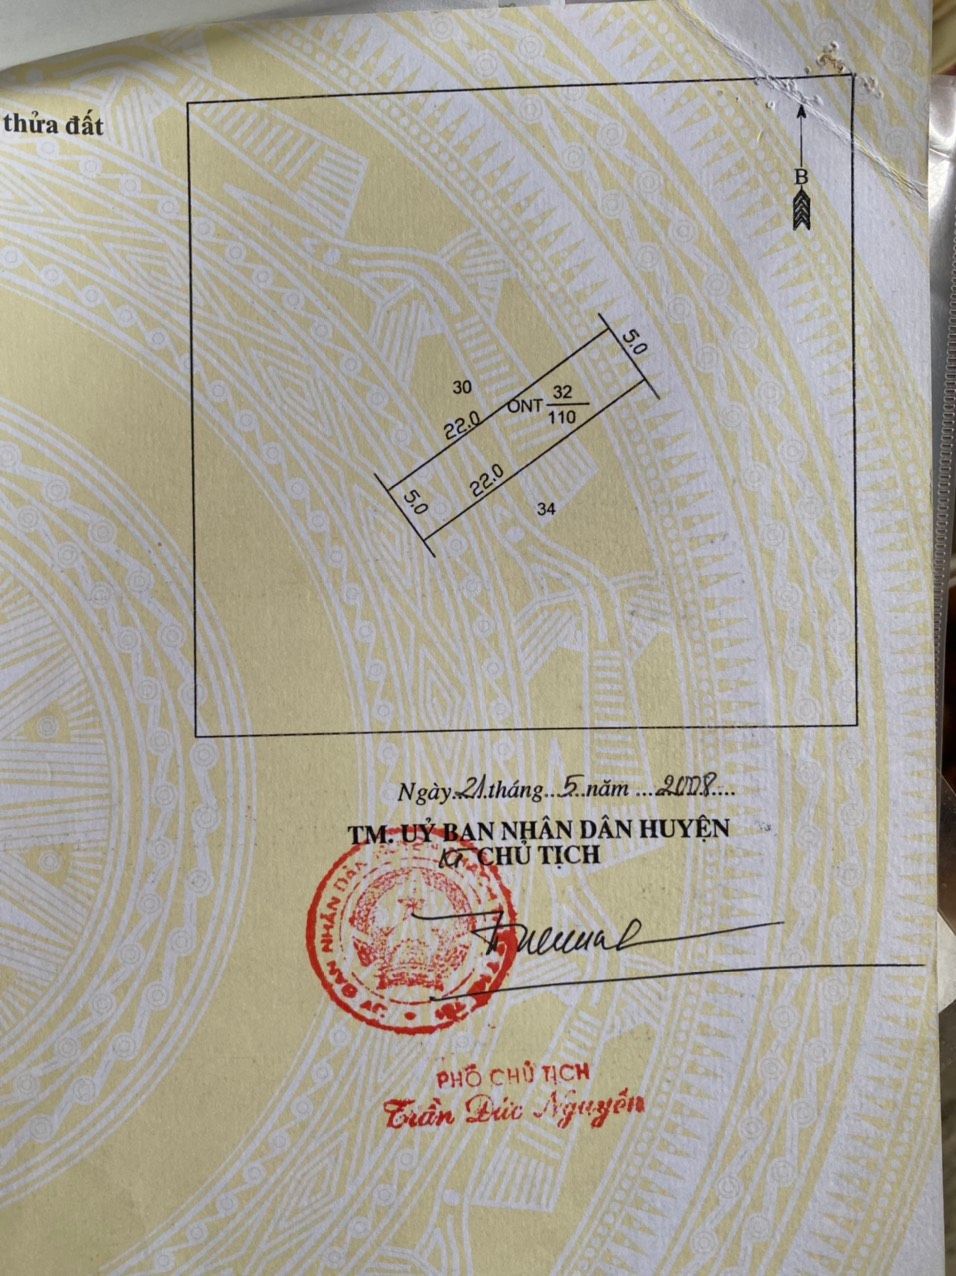 thửa đất
B
5.0
30
ONT 32
110
22.0
22.0
5.0
34
Ngày 21 tháng 5 năm 2008
TM. UỶ BAN NHÂN DÂN HUYỆN
KT CHỦ TỊCH
BAN NHÂN DÂN
PHÓ CHỦ TỊCH
Trần Đức Nguyến